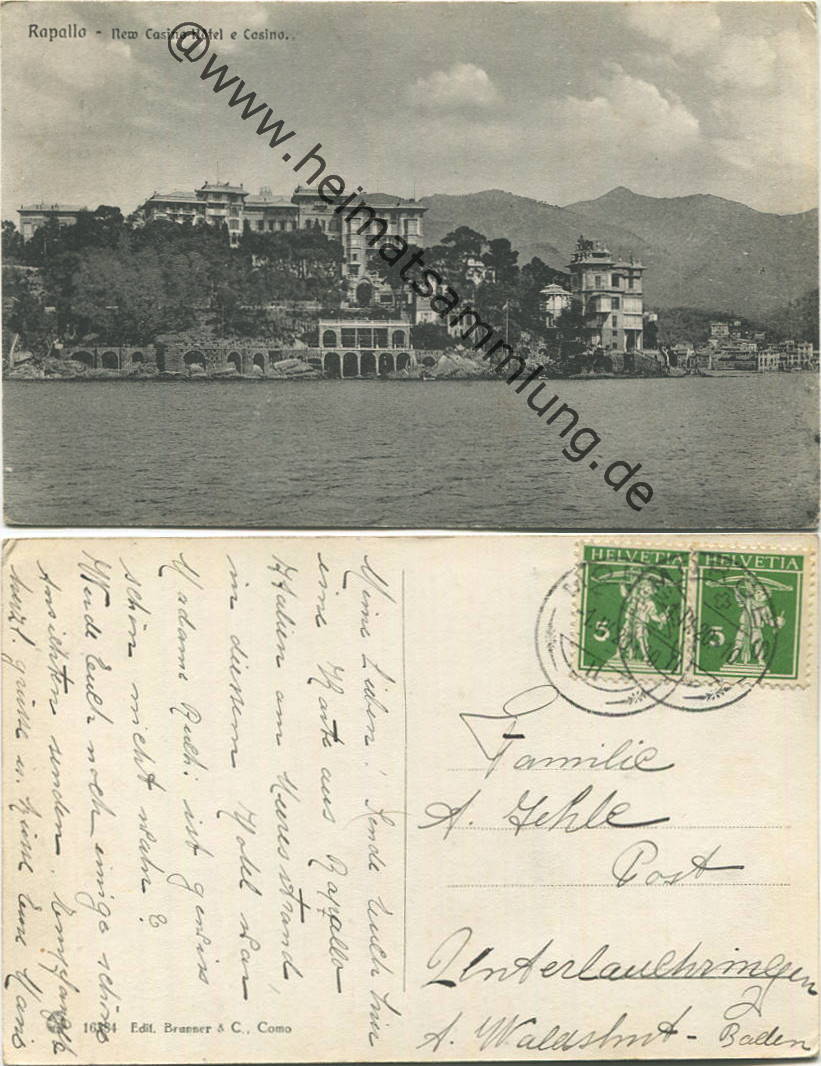 Rapallo - New Casino Hotel e Casino..
@www.heimatsammlung.de
HELVETIA
HELVETIA
5
5
Meine Lieben! Sende Euch hier
eine Karte aus Rapallo
Italien am Meeresstrand,
in diesem Hotel war
Madame Ruth: ist gewiss
schön nicht wahr?
Werde Euch noch einige schöne
Ansichten senden. Empfanget
herzl. grüsse u. Küsse Eure
Familie
A. Jehle
Post
Unterlauchringen
A. Waldshut - Baden
16384 Edit. Brunner & C., Como